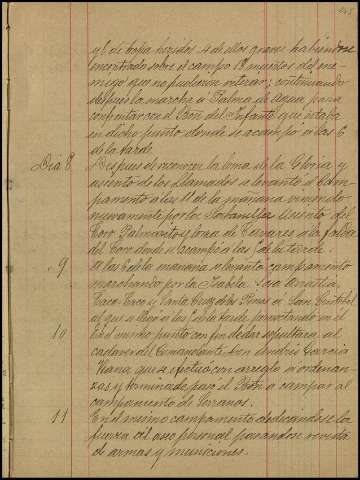 y 6 de tropa heridos 4 de ellos graves habiéndose
encontrado sobre el campo 19 muertos del ene-
migo que no pudieron retirar; continuando
despues la marcha a Palma de Agua para
confrontar con el Bon del Infante que estaba
en dicho punto donde se acampó a las 6
de la tarde
Dia 8 Despues de reconocer la loma de la Gloria y
asiento de los Llamados se levantó el Cam-
pamento a las 11 de la mañana viniendo
nuevamente por los asiento del
Coco Palmarito y loma de Tavares a la falda
del Coco donde se acampó a las 6 de la tarde.
9 A las 6 de la mañana se levantó campamento
marchando por la Isabela
y Santa Cruz de los Pinos a San Cristobal
al que se llegó a las 6 de la tarde pernoctando en él
10 En el mismo punto con fin de dar sepultura al
cadaver del Comandante Don Andres Garcia
Viana, que se efectuó con arreglo a ordenan-
zas y terminado pasó el Bon a acampar al
campamento de Serranos.
11 En el mismo campamento dedicandose la
fuerza al aseo personal pasandose revista
de armas y municiones.